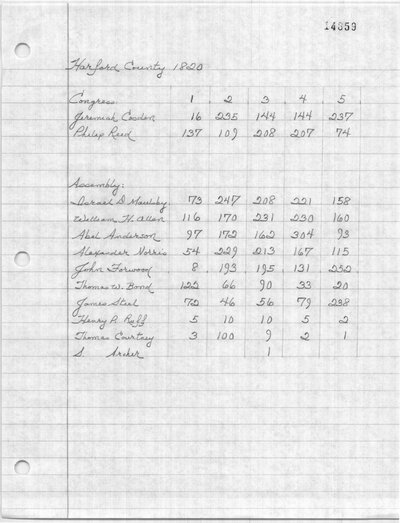 14859
Harford County 1820
Congress 1 2 3 4 5
Jeremiah Cosden 16 235 144 144 237
Philip Reed 137 109 208 207 74
Assembly:
Israel D. Maulsby 73 247 208 221 158
William H. Allen 116 170 231 230 160
Abel Anderson 97 172 162 304 93
Alexander Norris 54 229 213 167 115
John Forwood 8 193 195 131 232
Thomas W. Bond 122 66 90 33 20
James Steel 72 46 56 79 238
Henry R. Ruff 5 10 10 5 2
Thomas Courtney 3 100 9 2 1
S. Archer 1